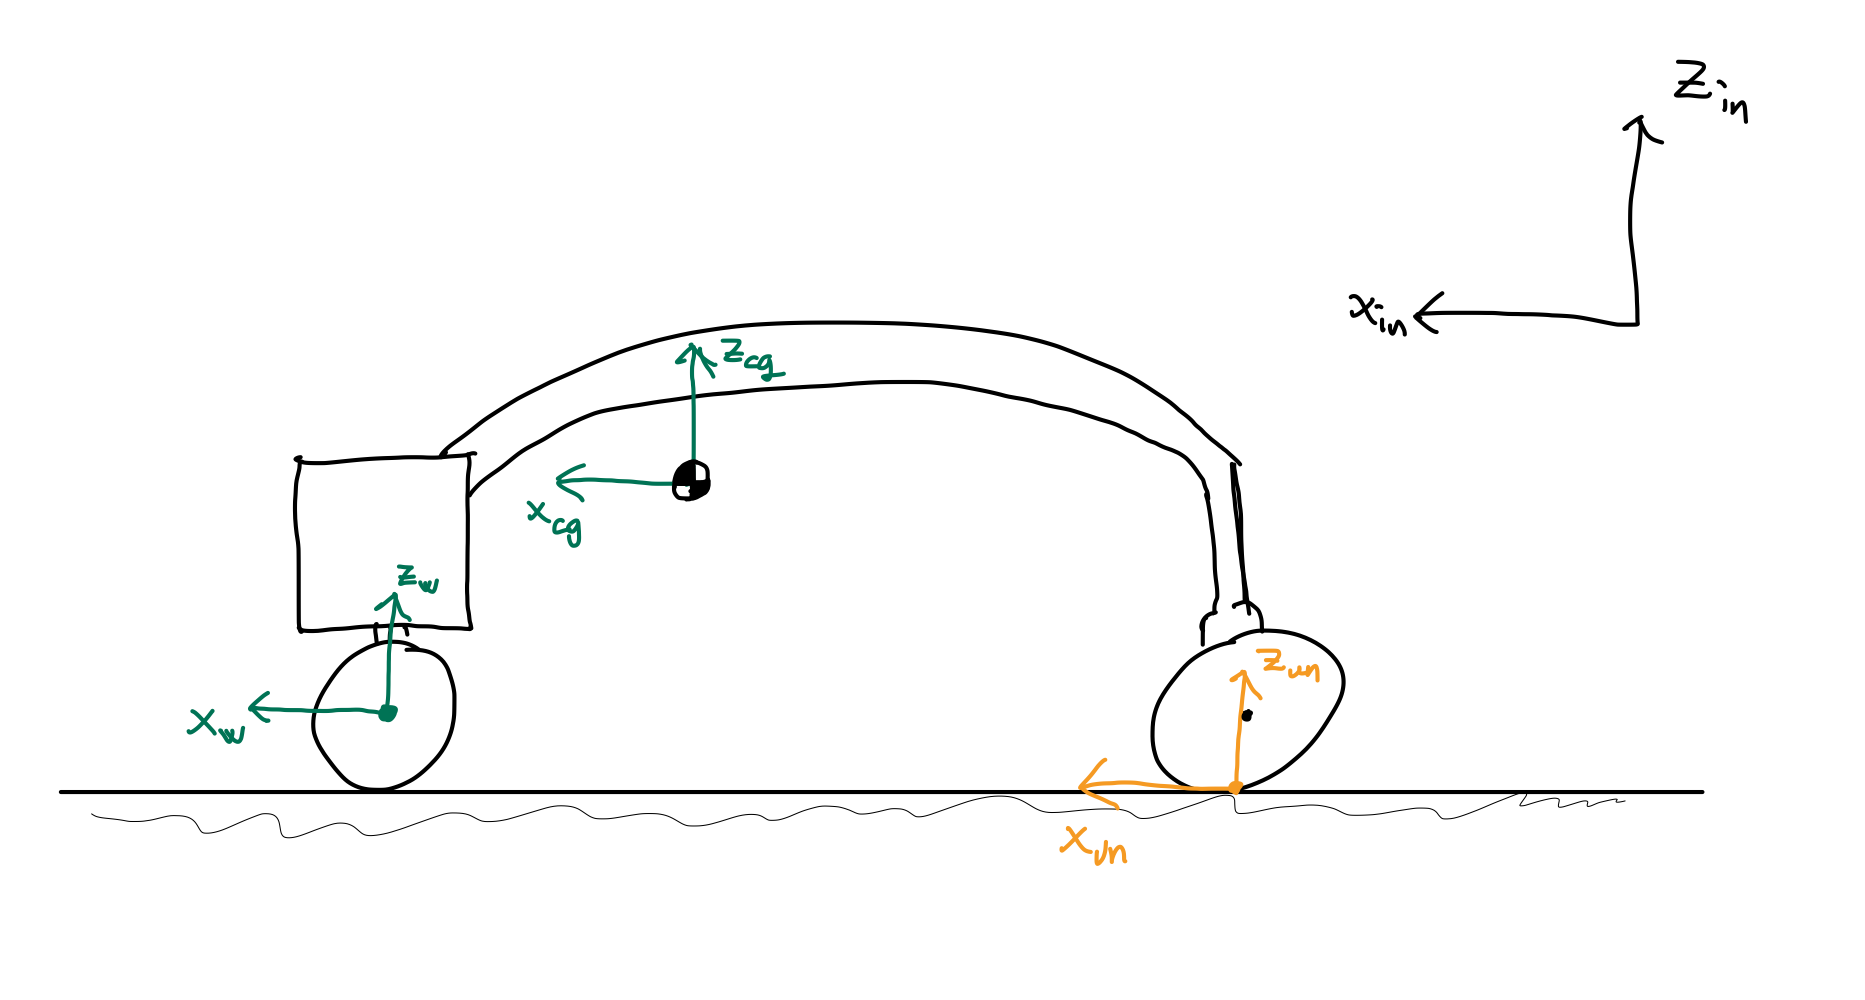 Z in
x in
z cg
x cg
z w
x w
z un
x un